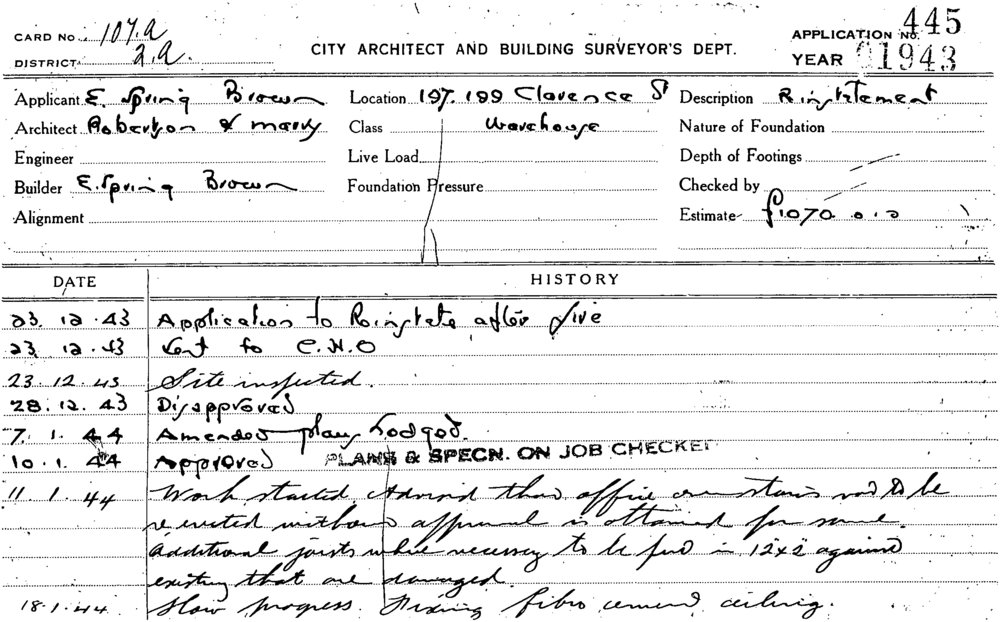 CARD No. 107.A
DISTRICT 2.A.
CITY ARCHITECT AND BUILDING SURVEYOR'S DEPT.
APPLICATION No. 445
YEAR 1943
Applicant E. Spring Brown
Location 197.199 Clarence St
Description Rinstatement
Architect Robertson & Marks
Class Warehouse
Nature of Foundation
Engineer
Live Load
Depth of Footings
Builder E. Spring Brown
Foundation Pressure
Checked by
Alignment
Estimate £1070.0.0
DATE HISTORY
23.12.43 Application to Reinstate after fire
23.12.43 Sent to C.H.O
23.12.43 Site inspected.
28.12.43 Disapproved
7.1.44 Amended plans Lodged.
10.1.44 Approved PLANS & SPECN. ON JOB CHECKED
11.1.44 Work started. Advised that office stairs not to be
re erected without approval is obtained for same.
Additional joists where necessary to be put in 12x2 against
existing that are damaged.
18.1.44 Slow progress. Fixing fibro cement ceiling.